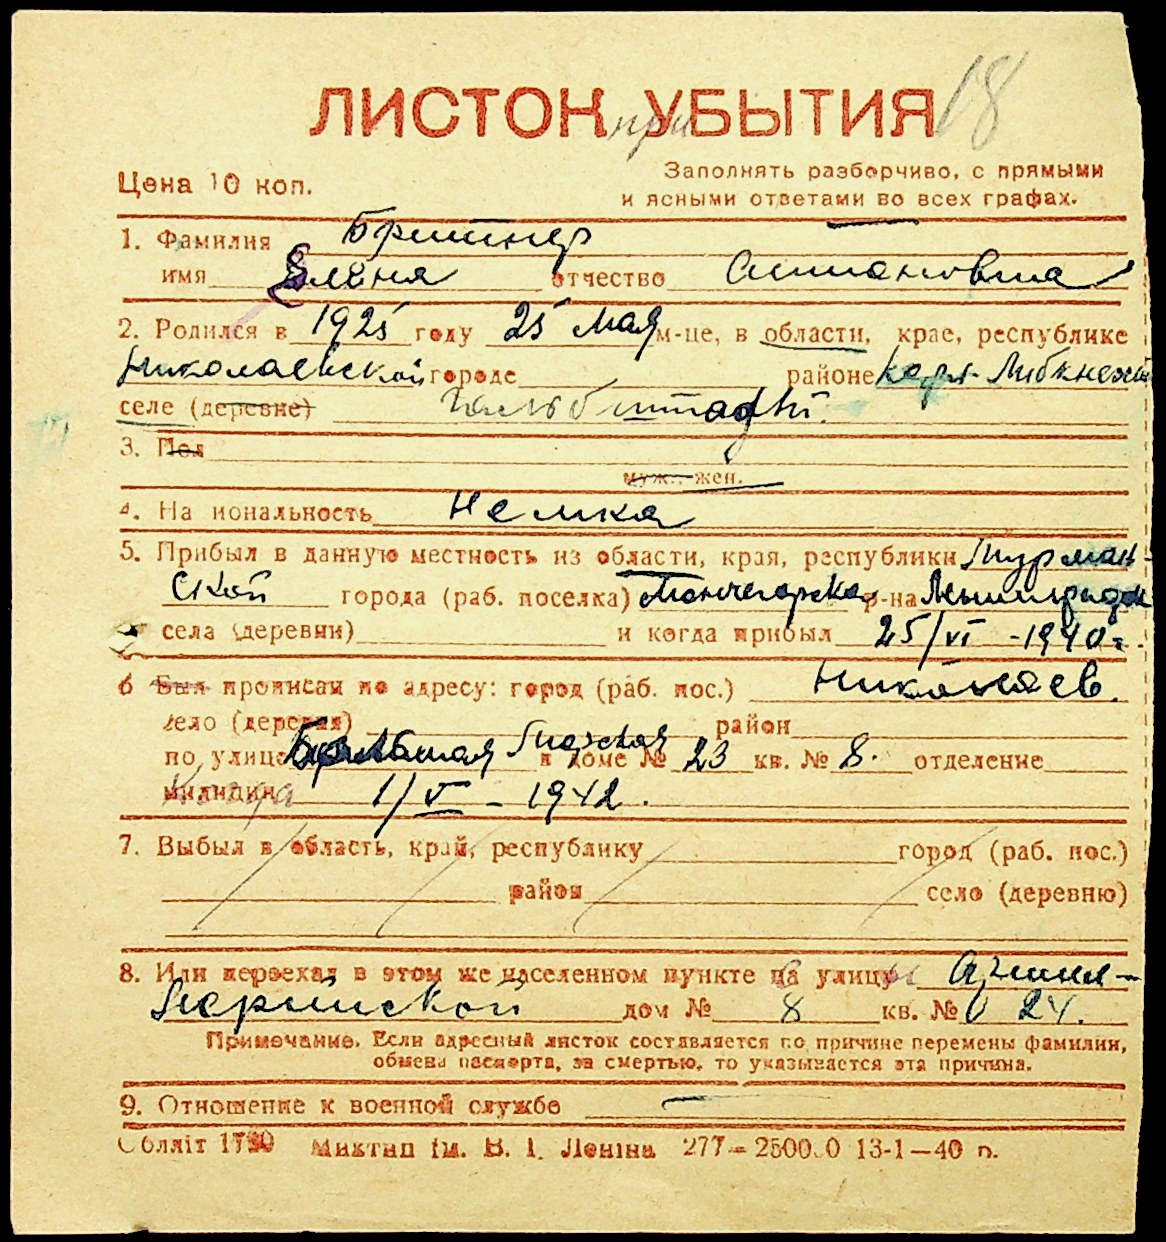 ЛИСТОК при УБЫТИЯ 18
Цена 10 коп.
Заполнять разборчиво, с прямыми
и ясными ответами во всех графах.
1. Фамилия Бритнер
имя Елена отчество
2. Родился в 1925 году 25 мая м-це, в области, крае, республике
Николаевской городе районе Карл-Либкнехт
селе (деревне) Гальбштадт.
3. Пол
муж., жен.
4. На иональность Немка
5. Прибыл в данную местность из области, края, республики Мурман-
ской города (раб. поселка) Мончегорска р-на
села (деревни) и когда прибыл 25/VI -1940 г.
6 Был прописан по адресу: город (раб. пос.) Николаев.
село (деревня) район
по улице Большая Морская в доме № 23 кв. № 8. отделение
милиции Когда 1/V - 1942.
7. Выбыл в область, край, республику город (раб. пос.)
район село (деревню)
8. Или переехал в этом же населенном пункте на улицу
дом № 8 кв. № 24.
Примечание. Если адресный листок составляется по причине перемены фамилии,
обмена паспорта, за смертью, то указывается эта причина.
9. Отношение к военной службе —
Обліт 1790 Миктип ім. В. І. Леніна 277—2500.0 13-1—40 п.